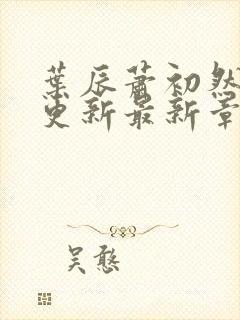 葉辰蕭初然
更新最新章
吴憨